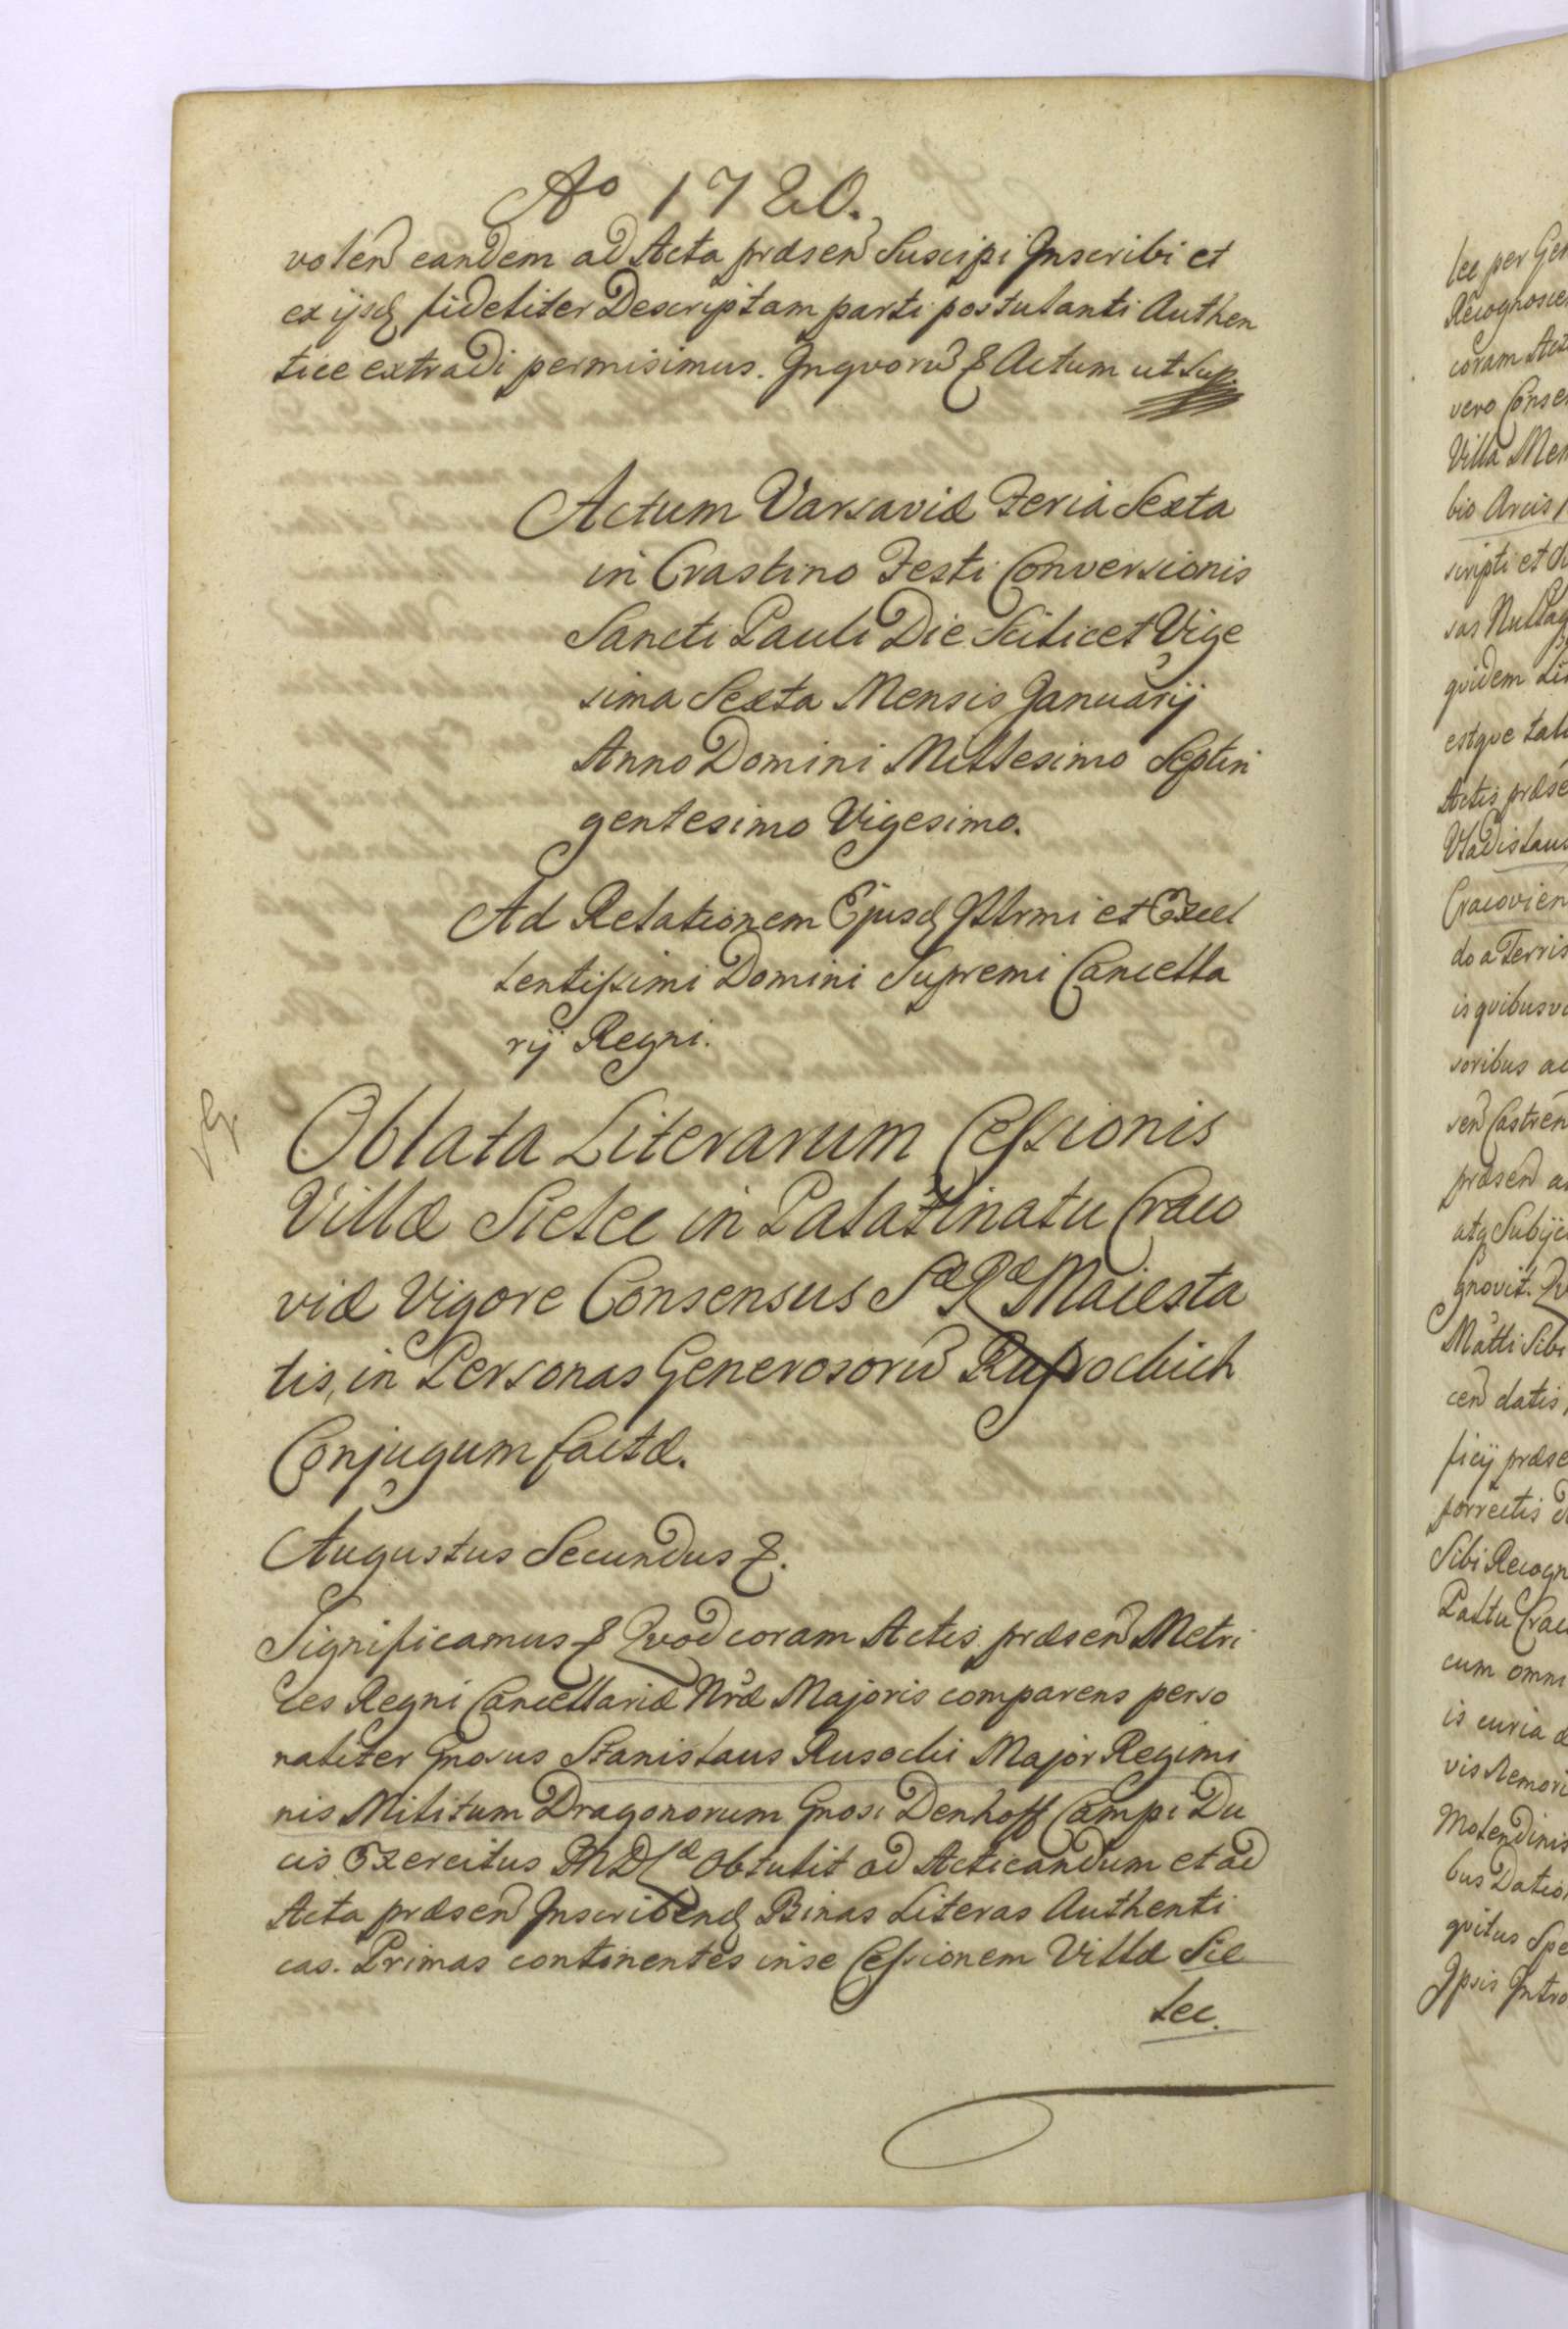 Ao 1720.
volen eandem ad Acta præsen Suscipi Inscribi et
ex ijsq fideliter Descriptam parti postulanti Authen
tice extradi permisimus. Inqvoru & Actum ut Sup.
Actum Varsaviæ Feria Sexta
in Crastino Festi Conversionis
Sancti Pauli Die Scilicet Vige
sima Sexta Mensis Januarij
Anno Domini Millesimo Septin
gentesimo Vigesimo.
Ad Relationem Ejusq Illrmi et Excel
lentissimi Domini Supremi Cancella
rij Regni.
Oblata Literarum Cessionis
Villæ Sielec in Palatinatu Craco
viæ Vigore Consensus Sæ Ræ Maiesta
tis, in Personas Generosoru
Conjugum factæ.
Augustus Secundus &.
Significamus & Qvod coram Actis præsen Metri
ces Regni Cancellariæ Nræ Majoris comparens perso
naliter Gnosus Stanislaus Rusocki Major Regimi
nis Militum Dragonorum Gnosi Denhoff Campi Du
cis Exercitus MDL Obtulit ad Acticandum et ad
Acta præsen Inscribend Binas Literas Authenti
cas. Primas continentes in se Cessionem Villæ Sie
lec.
lec per Gen
Recognoscen
coram Act
vero Conse
Villa
bio Arcis
scripti et
sas Nulla
qvidem Li
estqve tal
Actis præse
Vladislaus
Cracovien
do a Terris
is qvibusv
soribus ac
sen Castren
præsen a
atq Subijc
gnovit.
Sibi
cen datis,
ficij præse
porrectis
Sibi Recogn
Palttu Crac
cum omni
is curia
vis Nemori
Molendinis
bus Datio
Ipsis Intro